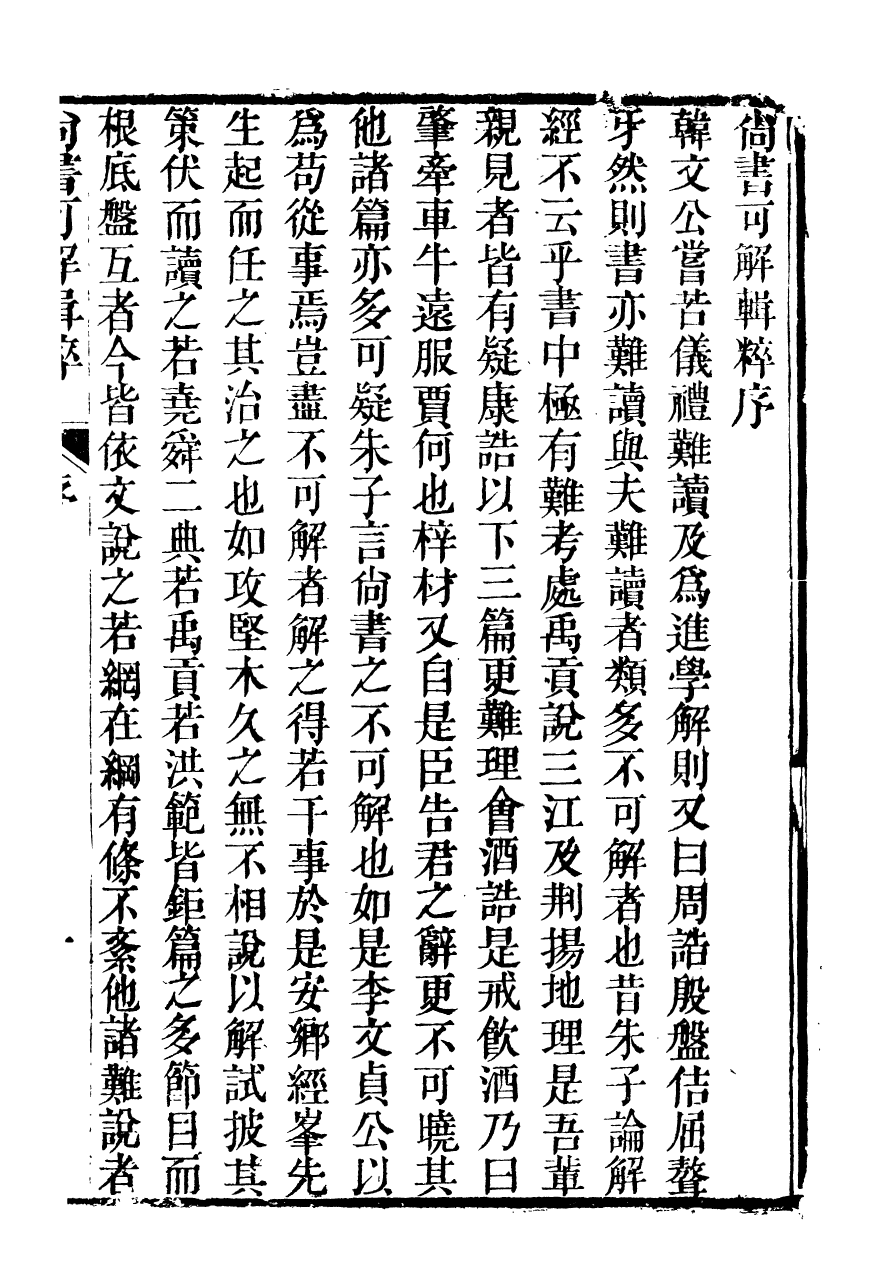 尙書可解輯粹序
韓文公嘗苦儀禮難讀及爲進學解則又曰周誥殷盤佶屈聱
牙然則書亦難讀與夫難讀者類多不可解者也昔朱子論解
經不云乎書中極有難考處禹貢說三江及荆揚地理是吾輩
親見者皆有疑康誥以下三篇更難理會酒誥是戒飮酒乃曰
肇牽車牛遠服賈何也梓材又自是臣告君之辭更不可曉其
他諸篇亦多可疑朱子言尙書之不可解也如是李文貞公以
爲苟從事焉豈盡不可解者解之得若干事於是安鄉經峯先
生起而任之其治之也如攻堅木久之無不相說以解試披其
策伏而讀之若堯舜二典若禹貢若洪範皆鉅篇之多節目而
根底盤互者今皆依文說之若網在綱有條不紊他諸難說者
尙書可解輯粹 序